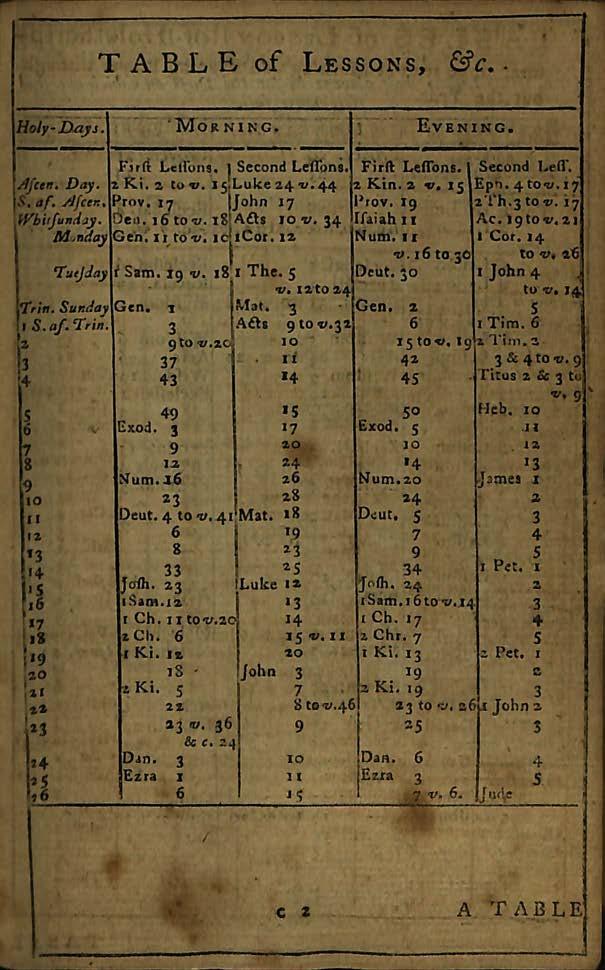 TABLE of LESSONS, &c.
Holy-Days. MORNING. EVENING.
Firſt Leſſons. Second Leſſons. Firſt Leſſons. Second Leſſ.
Aſcen. Day. 2 Ki. 2 to v. 15 Luke 24 v. 44 2 Kin. 2 v. 15 Eph. 4 to v. 17
S. af. Aſcen. Prov. 17 John 17 Prov. 19 2 Th. 3 to v. 17
Whitſunday. Deu. 16 to v. 18 Acts 10 v. 34 Iſaiah 11 Ac. 19 to v. 21
Monday Gen. 11 to v. 10 1 Cor. 12 Num. 11 1 Cor. 14
v. 16 to 30 to v. 26
Tueſday 1 Sam. 19 v. 18 1 The. 5 Deut. 30 1 John 4
v. 12 to 24 to v. 14
Trin. Sunday Gen. 1 Mat. 3 Gen. 2 5
1 S. af. Trin. 3 Acts 9 to v. 32 6 1 Tim. 6
2 9 to v. 20 10 15 to v. 19 2 Tim. 2
3 37 11 42 3 & 4 to v. 9
4 43 14 45 Titus 2 & 3 to
v. 9
5 49 15 50 Heb. 10
6 Exod. 3 17 Exod. 5 11
7 9 20 10 12
8 12 24 14 13
9 Num. 16 26 Num. 20 James 1
10 23 28 24 2
11 Deut. 4 to v. 41 Mat. 18 Deut. 5 3
12 6 19 7 4
13 8 23 9 5
14 33 25 34 1 Pet. 1
15 Joſh. 23 Luke 12 Joſh. 24 2
16 1 Sam. 12 13 1 Sam. 16 to v. 14 3
17 1 Ch. 11 to v. 20 14 1 Ch. 17 4
18 2 Ch. 6 15 v. 11 2 Chr. 7 5
19 1 Ki. 12 20 1 Ki. 13 2 Pet. 1
20 18 John 3 19 2
21 2 Ki. 5 7 2 Ki. 19 3
22 22 8 to v. 46 23 to v. 26 1 John 2
23 23 v. 36 9 25 3
& c. 24
24 Dan. 3 10 Dan. 6 4
25 Ezra 1 11 Ezra 3 5
26 6 15 7 v. 6. Jude
C 2 A TABLE